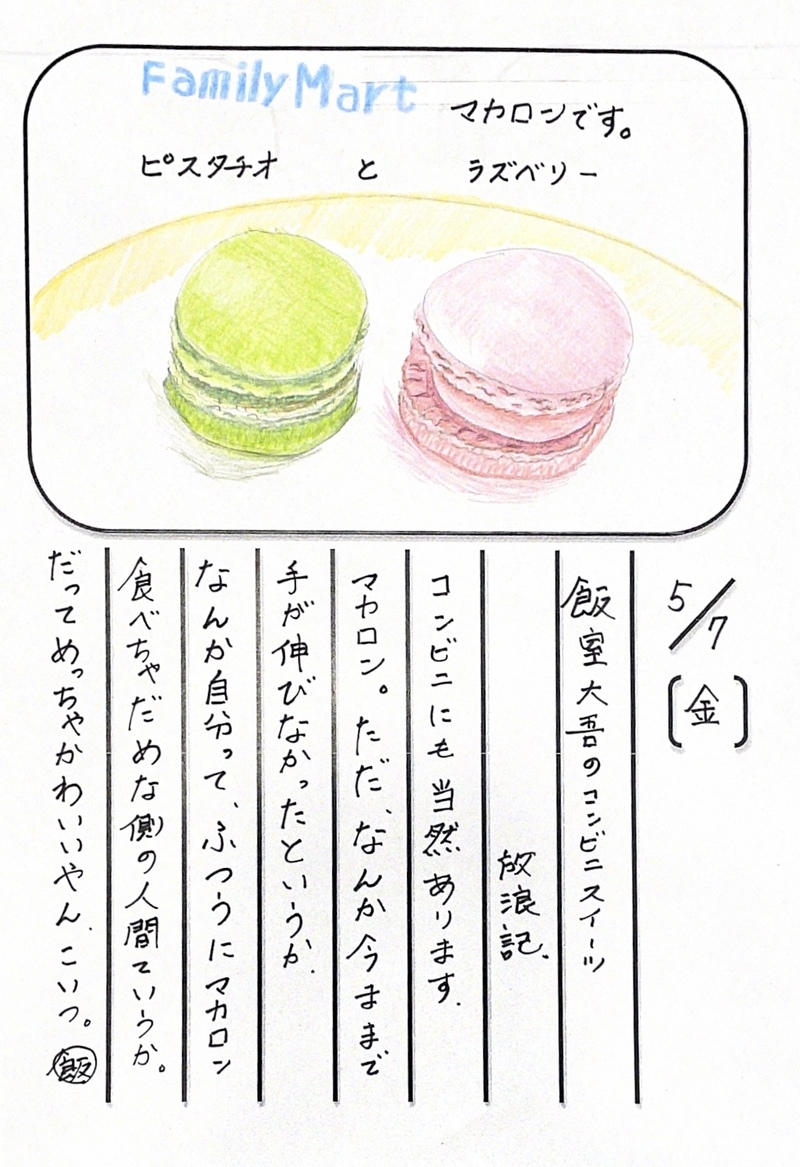 FamilyMart
マカロンです。
ピスタチオ と ラズベリー
5/7
(金)
飯室大吾のコンビニスイーツ
放浪記.
コンビニにも当然あります.
マカロン。ただ、なんか今まで
手が伸びなかったというか.
なんか自分って、ふつうにマカロン
食べちゃだめな側の人間ていうか。
だってめっちゃかわいいやん、こいつ。
飯